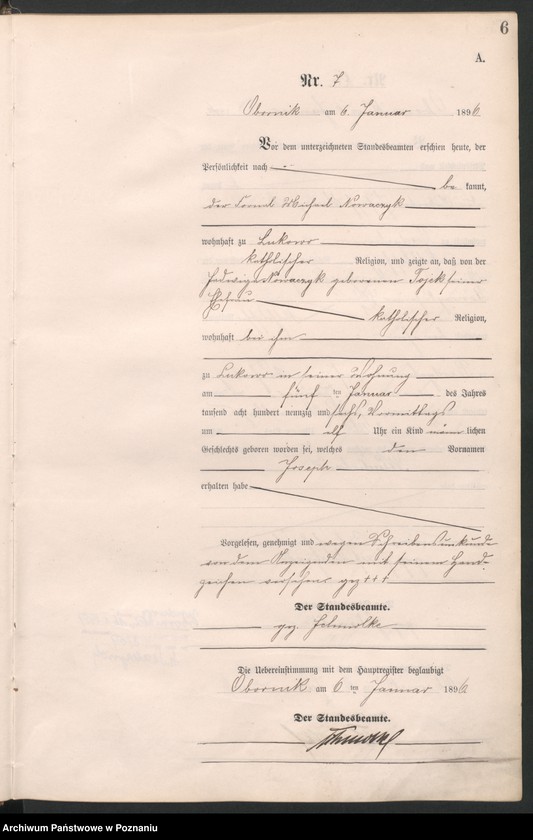 6
A.
Nr. 7
Obornik am 6 Januar 1896
Vor dem unterzeichneten Standesbeamten erschien heute, der
Persönlichkeit nach
be kannt,
der Michael Nowaczyk
wohnhaft zu Lukowo
katholischer Religion, und zeigte an, daß von der
Hedwiga Nowaczyk geborenen seiner
Ehefrau
katholischer Religion,
wohnhaft bei ihm
zu Lukowo in seiner Wohnung
am fünf ten Januar des Jahres
tausend acht hundert neunzig und sechs, Vormittags
um elf Uhr ein Kind männ lichen
Geschlechts geboren worden sei, welches den Vornamen
Joseph
erhalten habe
Vorgelesen, genehmigt und wegen Schreibensunkunde
von dem Anzeigenden mit seinem Hand-
zeichen versehen gez +++
Der Standesbeamte.
gez.
Die Uebereinstimmung mit dem Hauptregister beglaubigt
Obornik am 6 ten Januar 1896
Der Standesbeamte.
Archiwum Państwowe w Poznaniu